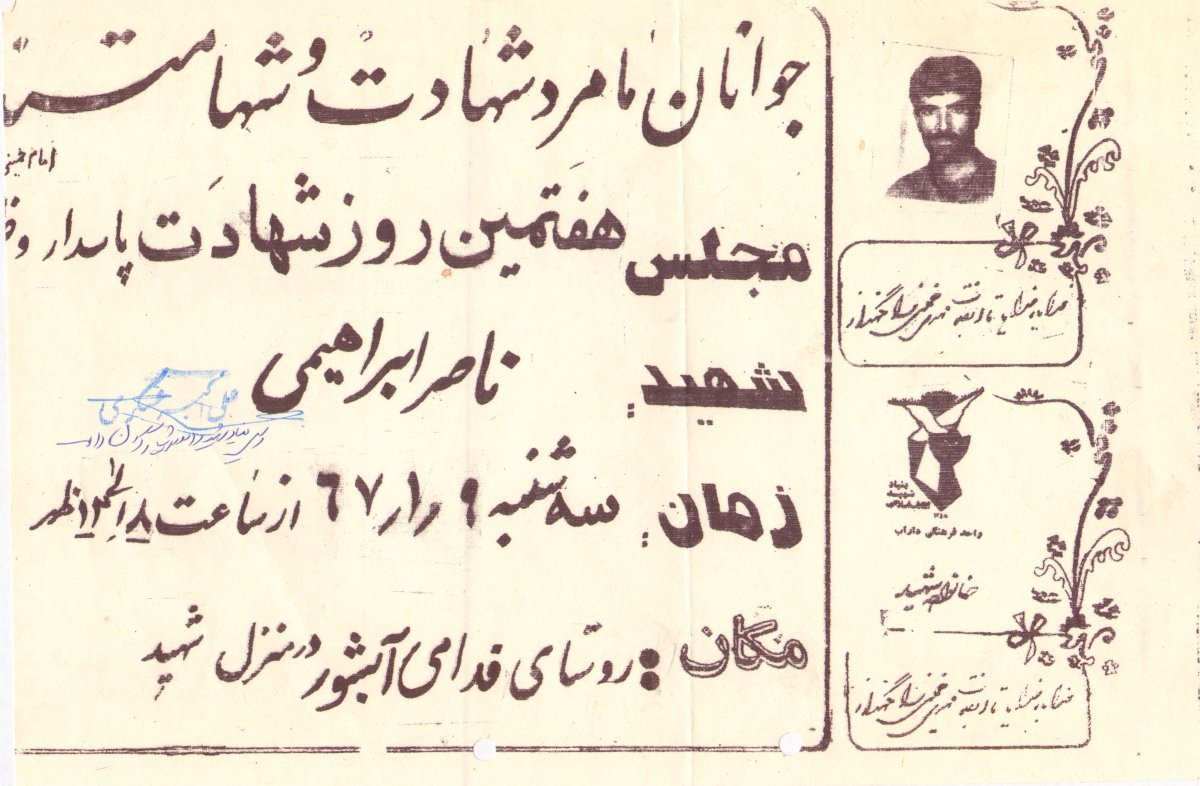 جوانان ما مرد شهادت و شهامت
امام خمینی
مجلس هفتمین روز شهادت پاسدار و
شهید ناصر ابراهیمی
زمان سه شنبه ۶۷٫۱٫۹ از ساعت ۸ الی ۱۲ ظهر
مکان : روستای قدامی آبشور در منزل شهید
خدایا، خدایا، تا انقلاب مهدی خمینی را نگهدار
بنیاد
شهید
انقلاب اسلامی
واحد فرهنگی داراب
خانواده شهید
خدایا، خدایا، تا انقلاب مهدی خمینی را نگهدار